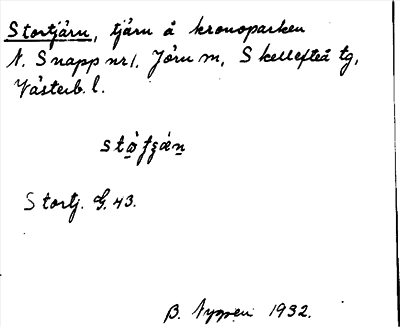 Stortjärn, tjärn å kronoparken
N. Snapp nr 1. Jörn m, Skellefteå tg,
Västerb. l.
Stortj. G. 43.
B. Nygren 1932.